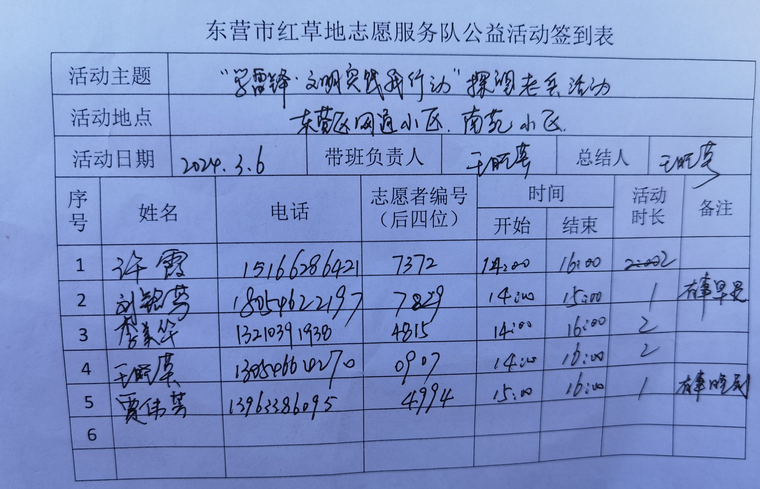 东营市红草地志愿服务队公益活动签到表
活动主题 "学雷锋·文明实践我行动"探望老兵活动
活动地点 东营区网通小区、南苑小区
活动日期 2024.3.6 带班负责人 王旼英 总结人 王旼英
序号 姓名 电话 志愿者编号（后四位） 时间 开始 结束 活动时长 备注
1 许霞 15166286421 7372 14:00 16:00 2
2 刘铭芳 18054622197 7829 14:00 15:00 1 有事早走
3 李美华 13210391938 4815 14:00 16:00 2
4 王旼英 0907 14:00 16:00 2
5 贾伟芳 13963386095 4994 15:00 16:00 1 有事晚到
6